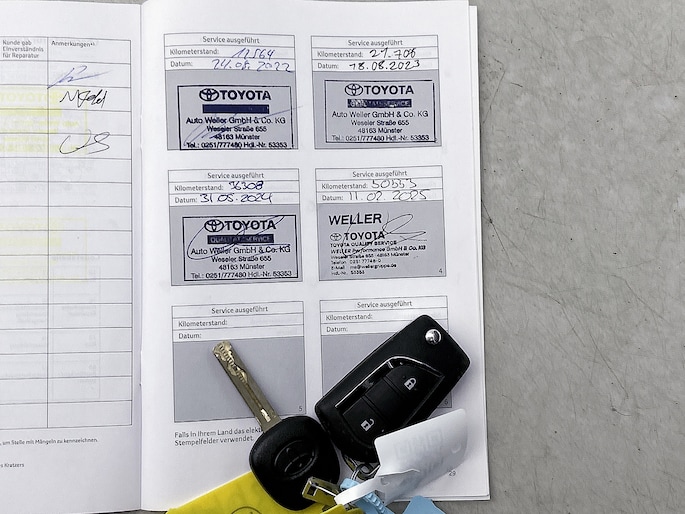 Kunde gab
Einverständnis
für Reparatur
Anmerkungen
um Stelle mit Mängeln zu kennzeichnen.
s Kratzers
Service ausgeführt
Kilometerstand: 12564
Datum: 24.08.2022
TOYOTA
Auto Weller GmbH & Co. KG
Weseler Straße 655
48163 Münster
Tel.: 0251/777480 Hdl.-Nr. 53353
Service ausgeführt
Kilometerstand: 27.706
Datum: 18.08.2023
TOYOTA
Auto Weller GmbH & Co. KG
Weseler Straße 655
48163 Münster
Tel.: 0251/777480 Hdl.-Nr. 53353
Service ausgeführt
Kilometerstand: 36308
Datum: 31.05.2024
TOYOTA
QUALITÄTSSERVICE
Auto Weller GmbH & Co. KG
Weseler Straße 655
48163 Münster
Tel.: 0251/777480 Hdl.-Nr. 53353
Service ausgeführt
Kilometerstand: 50553
Datum: 11.02.2025
WELLER
TOYOTA
TOYOTA QUALITY SERVICE
WELLER Performance GmbH & Co. KG
Weseler Straße 655 48163 Münster
Telefon 0251 77748-0
Hdl.-Nr.: 53353
4
Service ausgeführt
Kilometerstand:
Datum:
5
Service ausgeführt
Kilometerstand:
Datum:
Falls in Ihrem Land das elekt
Stempelfelder verwendet.
29